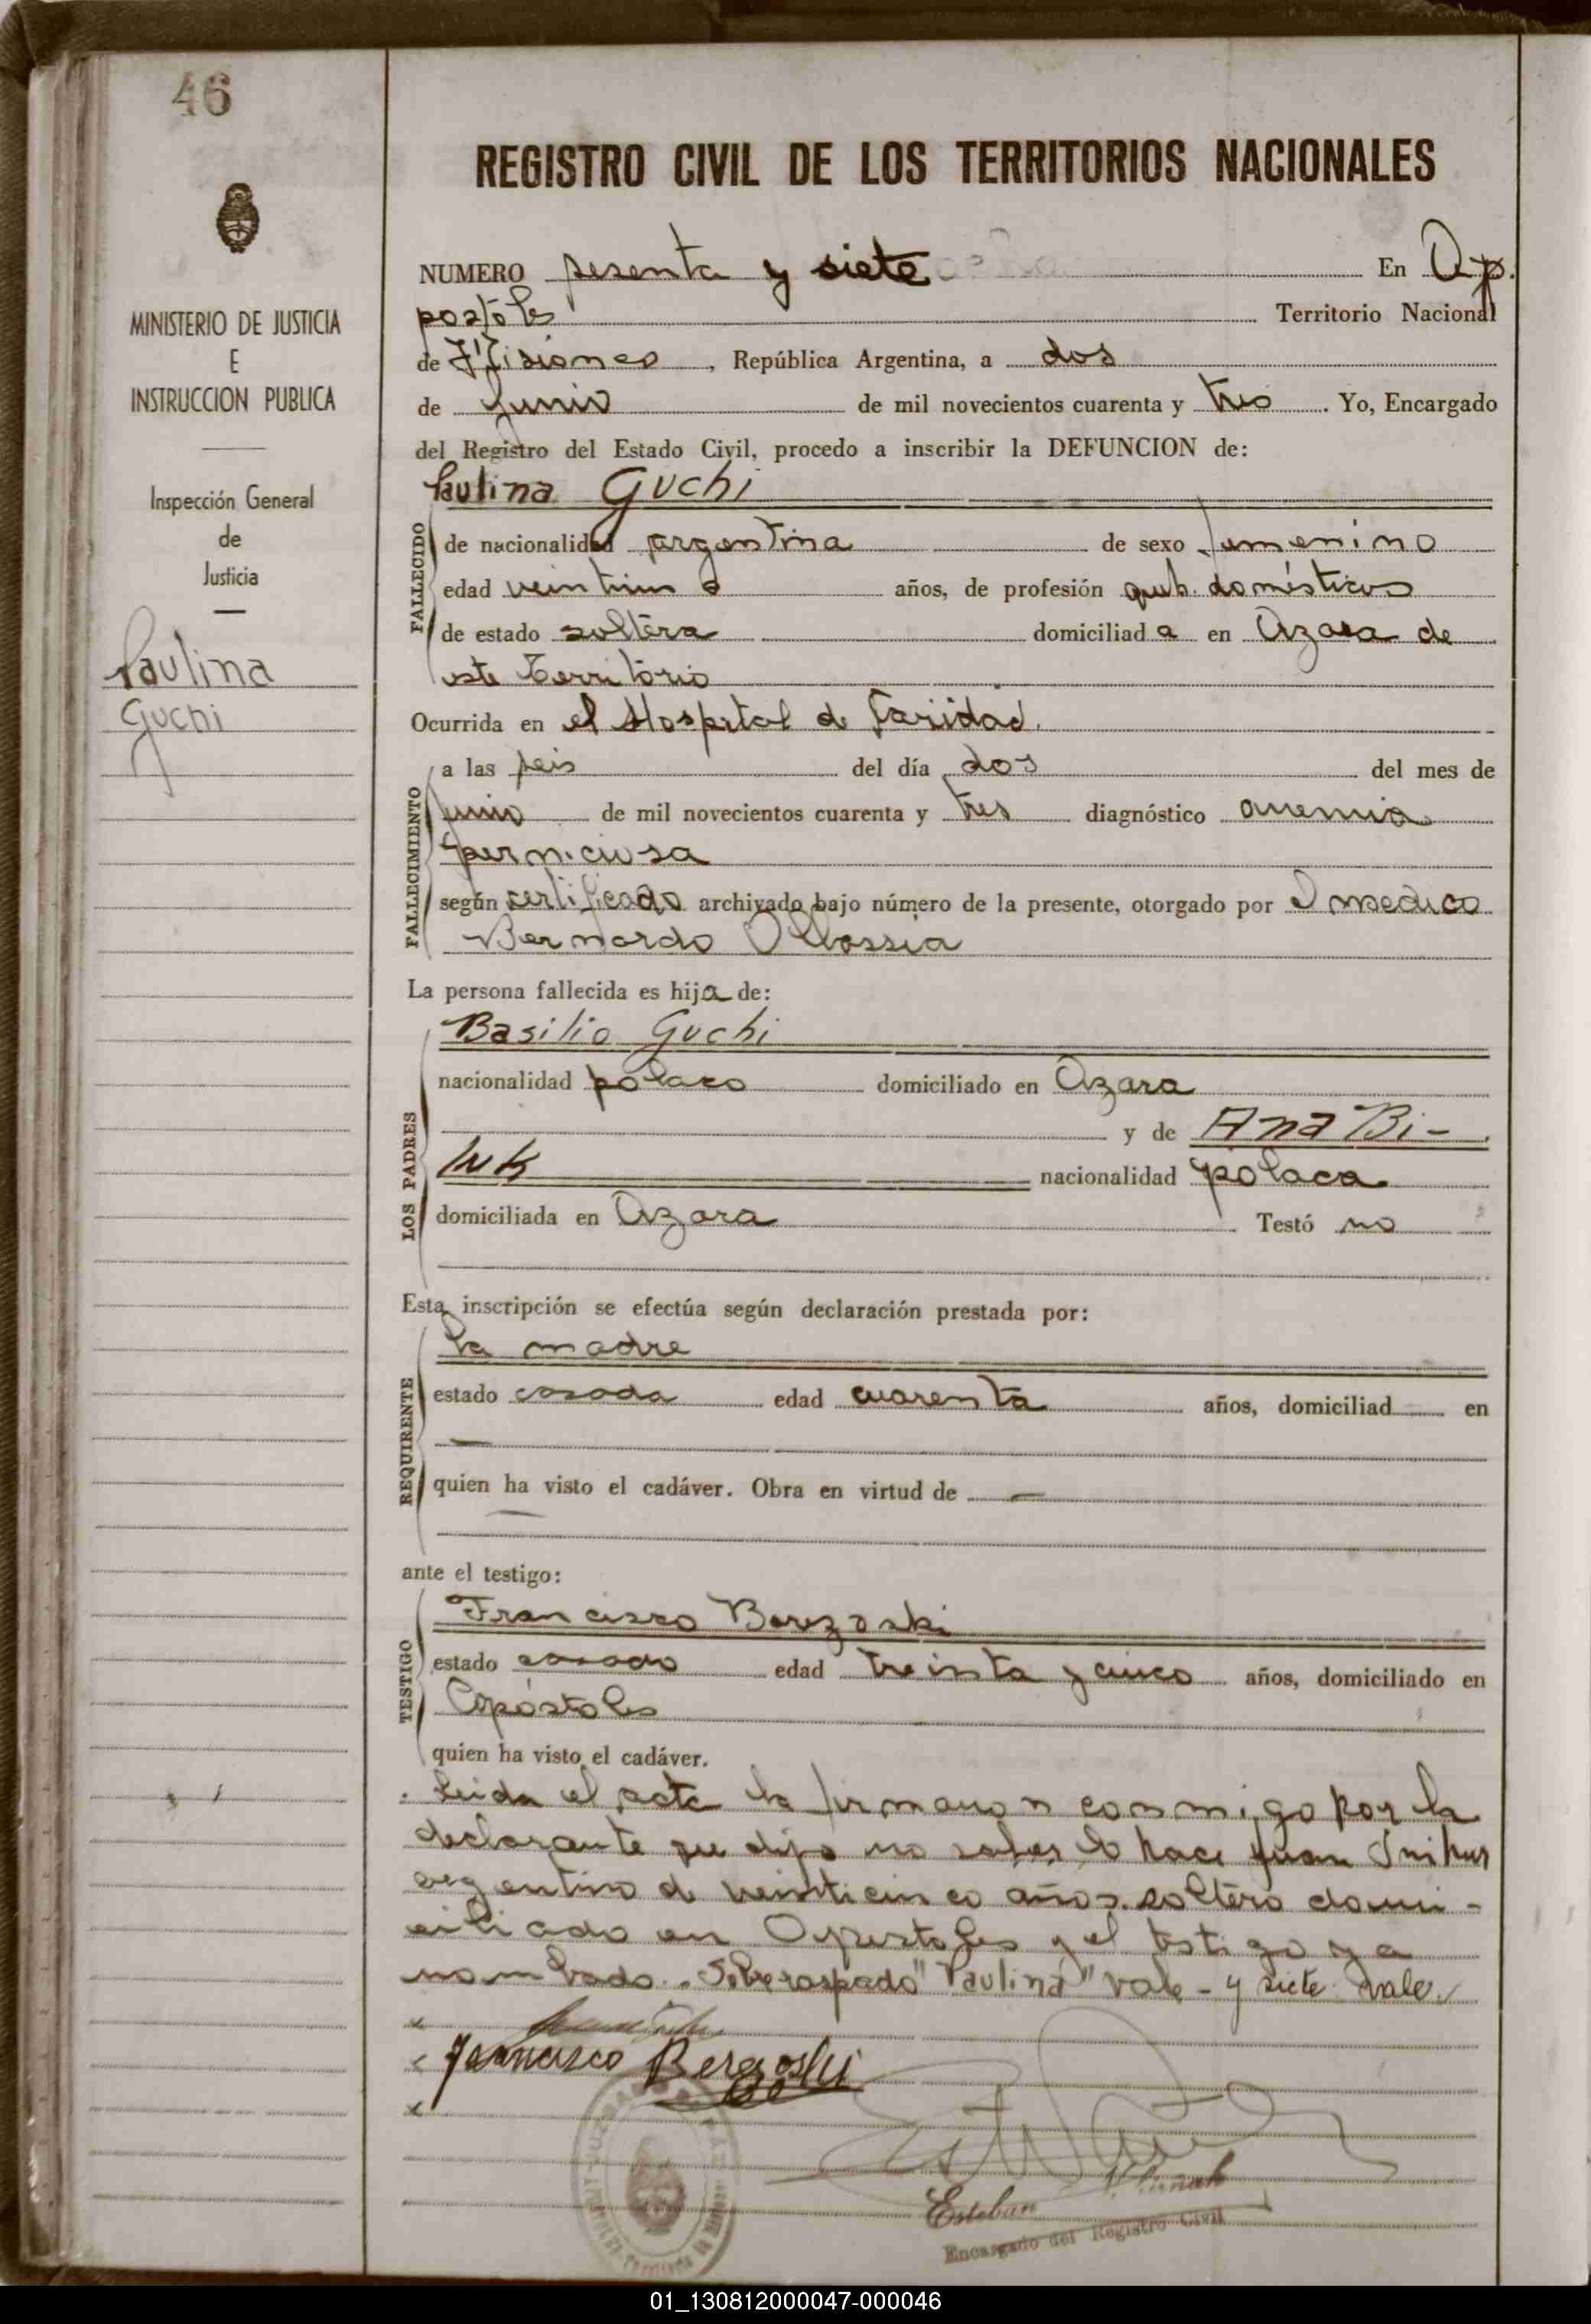 46
REGISTRO CIVIL DE LOS TERRITORIOS NACIONALES
MINISTERIO DE JUSTICIA
E
INSTRUCCION PUBLICA
Inspección General
de
Justicia
Paulina
Guchi
NUMERO sesenta y siete En Ap.
postoles Territorio Nacional
de Misiones, República Argentina, a dos
de Junio de mil novecientos cuarenta y tres. Yo, Encargado
del Registro del Estado Civil, procedo a inscribir la DEFUNCION de:
Paulina Guchi
FALLECIDO
de nacionalidad argentina de sexo femenino
edad años, de profesión queh. domésticos
de estado soltera domiciliada en Azara de
este Territorio
Ocurrida en el Hospital de Caridad.
FALLECIMIENTO
a las seis del día dos del mes de
junio de mil novecientos cuarenta y tres diagnóstico anemia
perniciosa
según certificado archivado bajo número de la presente, otorgado por el medico
Bernardo
La persona fallecida es hija de:
LOS PADRES
Basilio Guchi
nacionalidad polaco domiciliado en Azara
y de Ana Bi-
luk nacionalidad polaca
domiciliada en Azara Testó no
Esta inscripción se efectúa según declaración prestada por:
REQUIRENTE
la madre
estado casada edad cuarenta años, domiciliad en
—
quien ha visto el cadáver. Obra en virtud de —
ante el testigo:
TESTIGO
Francisco
estado casado edad treinta y cinco años, domiciliado en
Apóstoles
quien ha visto el cadáver.
Leida el acta la firmaron conmigo por la
declarante que dijo no saber lo hace Juan
argentino de veinticinco años soltero domi-
ciliado en Apostoles y el testigo ya
nombrado. Sobreraspado "Paulina" vale - y siete vale
Francisco Berezoski
Esteban
Encargado del Registro Civil
01_130812000047-000046